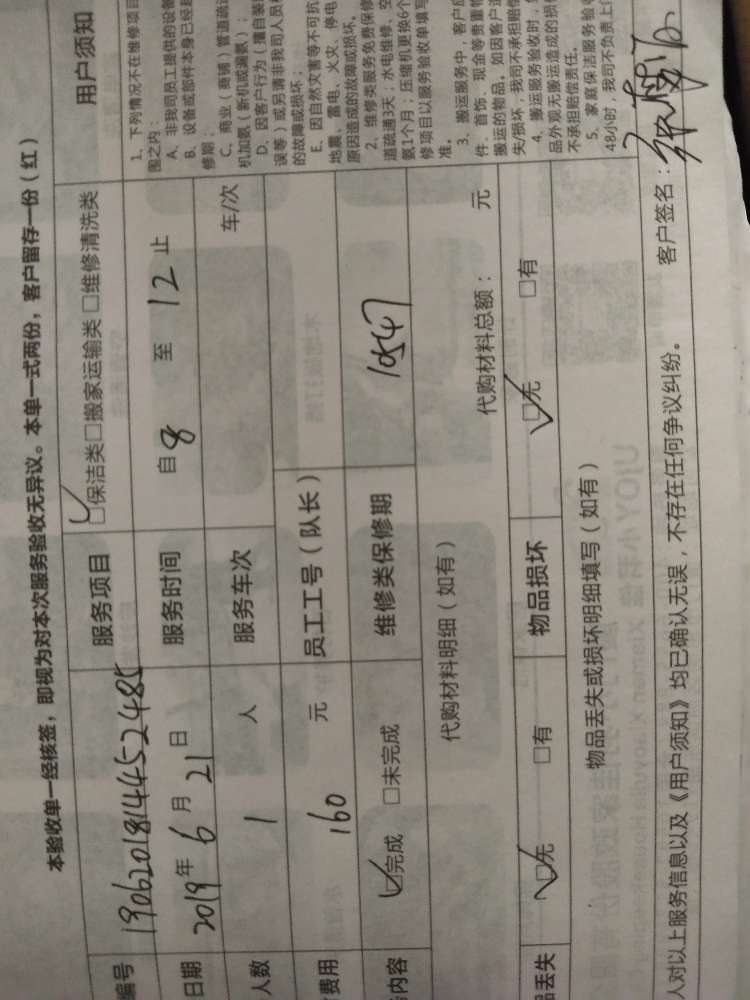 本验收单一经核签，即视为对本次服务验收无异议。本单一式两份，客户留存一份（红）
编号 190620181445 2485 服务项目 ☑保洁类□搬家运输类 □维修清洗类
日期 2019年 6 月 21 日 服务时间 自 8 至 12 止
人数 1 人 服务车次 车/次
费用 160 元 员工工号（队长）
内容 ☑完成 □未完成 维修类保修期 10547
代购材料明细（如有） 代购材料总额： 元
品丢失 ☑无 □有 物品损坏 ☑无 □有
物品丢失或损坏明细填写（如有）
人对以上服务信息以及《用户须知》均已确认无误，不存在任何争议纠纷。 客户签名：
用户须知
1、下列情况不在维修项目
围之内：
A、非我司员工提供的设备
B、设备或部件本身已经超
修期；
C、商业（商铺）管道疏通
机加氨（新机或漏氨）；
D、因客户行为（擅自装
误等）或另请非我司人员
的故障或损坏；
E、因自然灾害等不可抗
地震、雷电、火灾、停电
原因造成的故障或损坏。
2、维修类服务免费保修
道疏通3天；水电维修、空
氨1个月；压缩机更换6个
修项目以服务验收单填写
准。
3、搬运服务中，客户应
件、首饰、现金等贵重物
搬运的物品。如因客户
失/损坏，我司不承担赔偿
4、搬运服务验收时，
品外观无搬运造成的损
不承担赔偿责任。
5、家庭保洁服务验收
48小时，我司不负责上